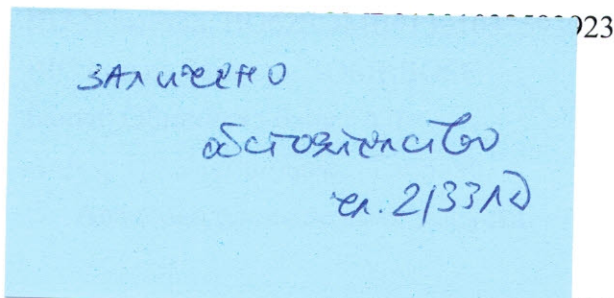 923
ЗАЛИЧЕНО
обстоятелство
чл. 2/ЗЗЛД